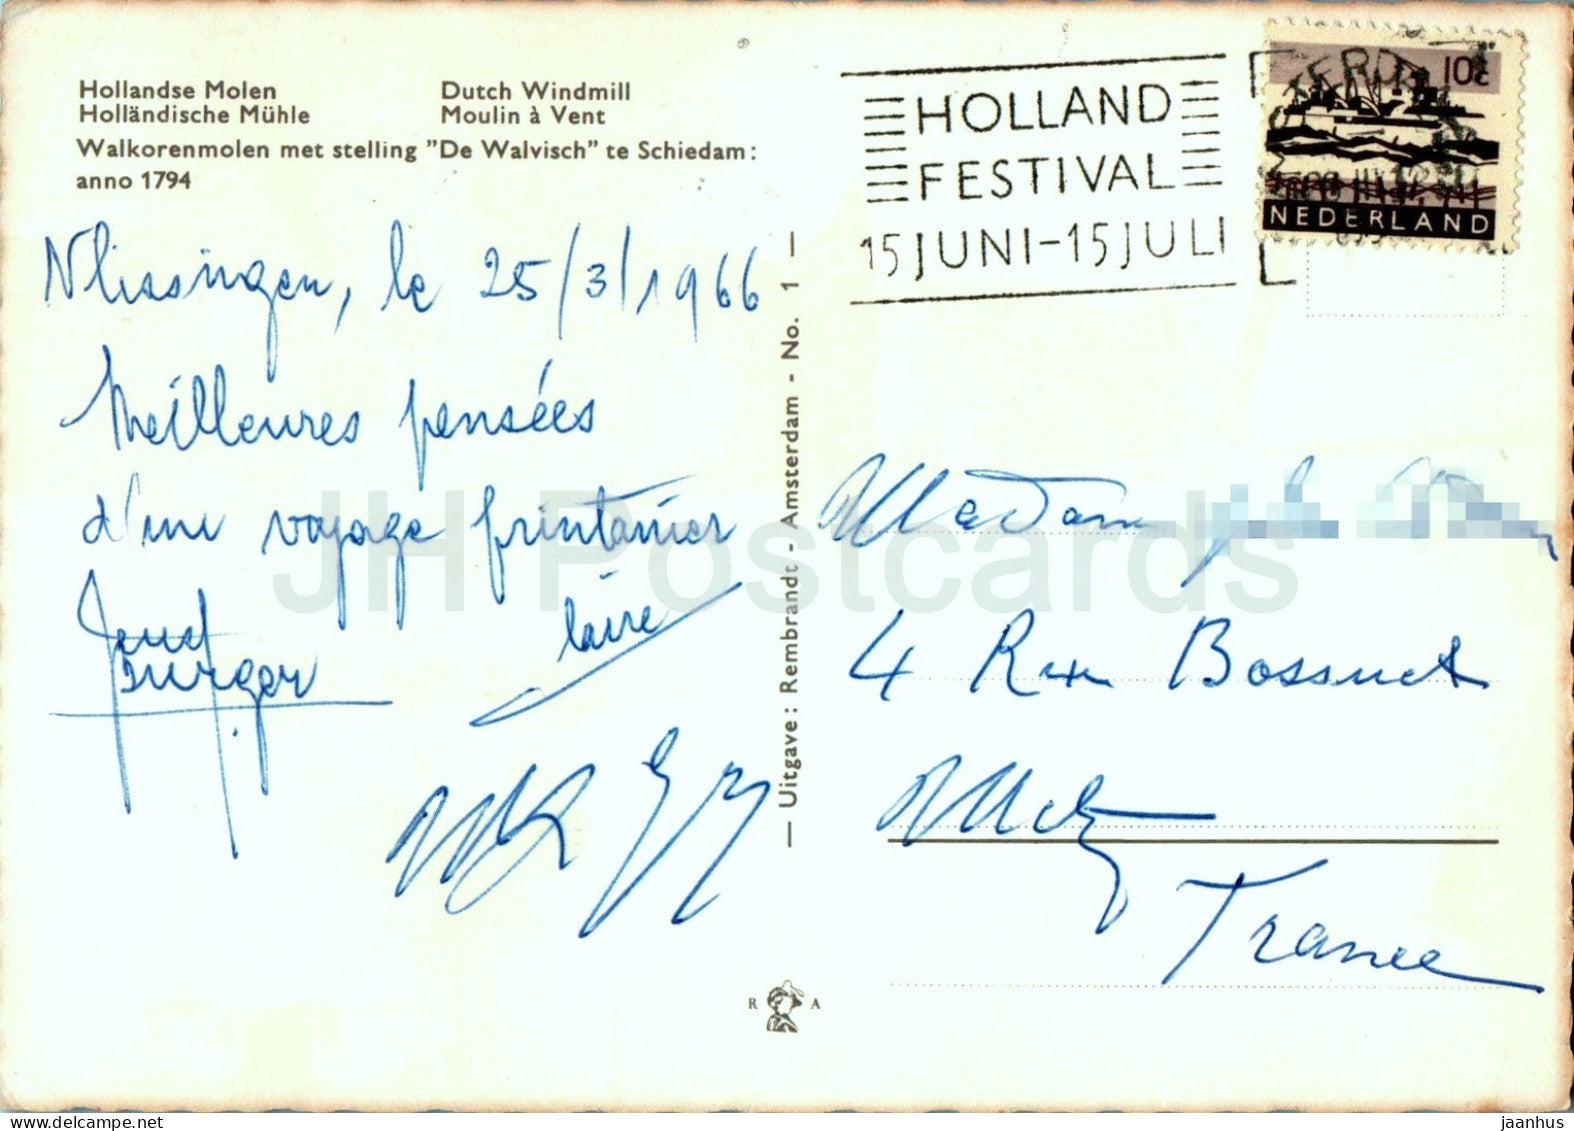 Hollandse Molen
Dutch Windmill
Holländische Mühle
Moulin à Vent
Walkorenmolen met stelling "De Walvisch" te Schiedam:
anno 1794
Vlissingen, le 25/3/1966
Meilleures pensées
d'un voyage printanier
Burger
laire
— Uitgave: Rembrandt - Amsterdam - No. 1 —
HOLLAND
FESTIVAL
15 JUNI-15 JULI
10c
NEDERLAND
Madame
4 Rue Bossuet
Metz
France
R A
JH Postcards
jaanhus